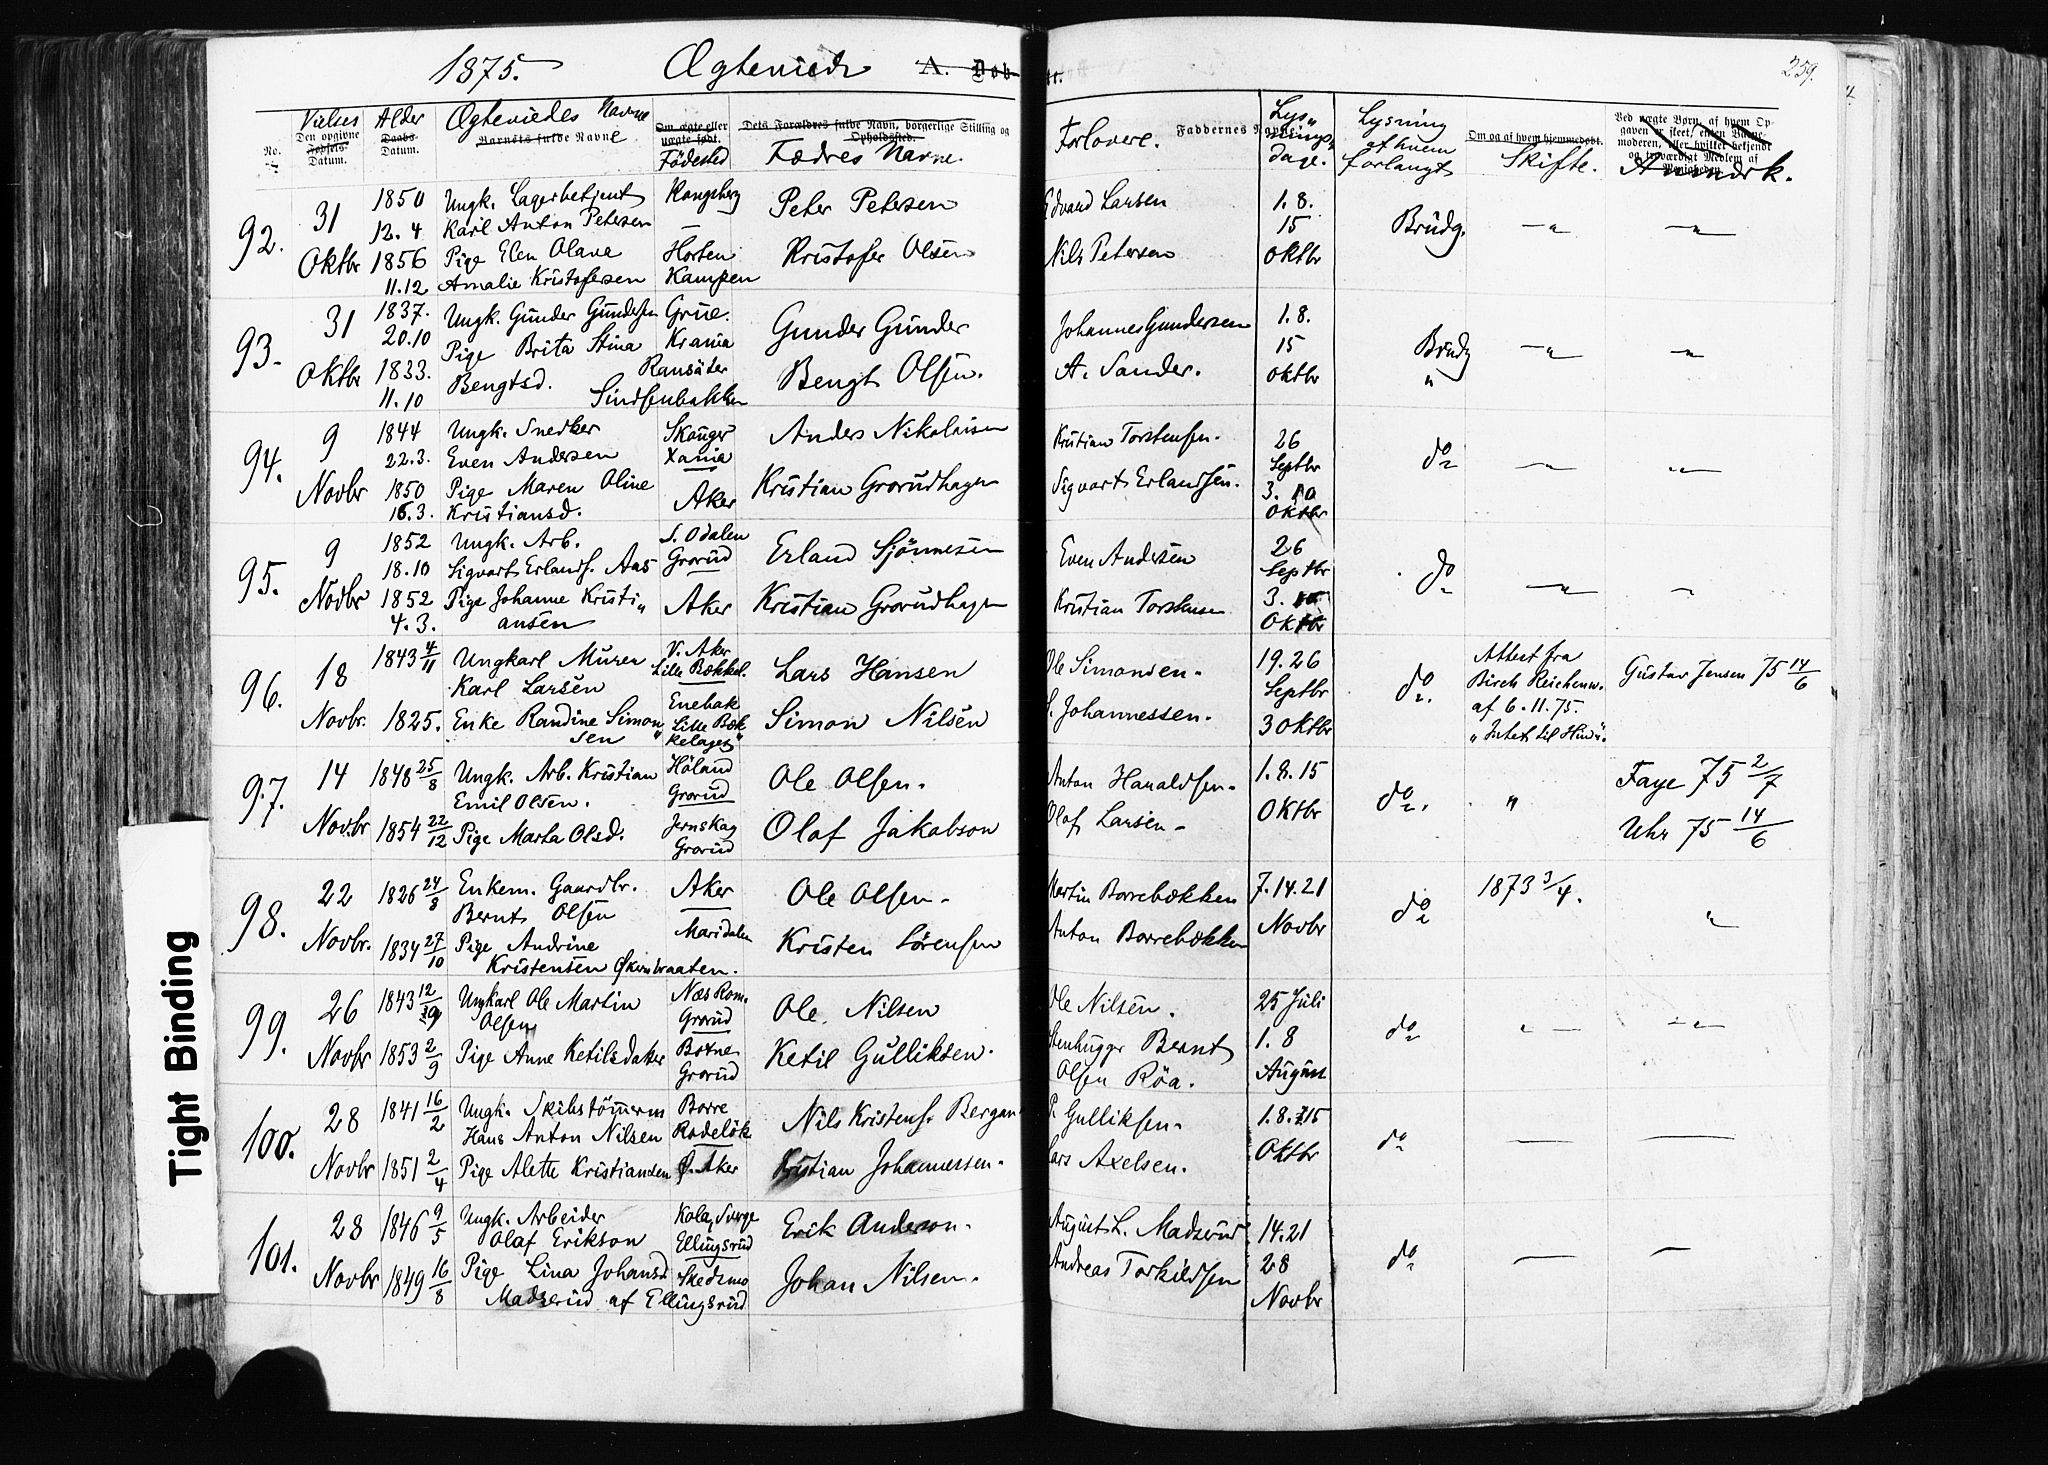 1875. Ægteviede A. Døb- 259.
No. Vielses Den opgivne Fødsels- Datum. Alder Daabs- Datum. Ægteviedes Navne Barnets fulde Navn Om ægte eller uægte født. Födested Dets Forældres fulde Navn, borgerlige Stilling og Opholdssted. Fædres Navne. Forlovere. Faddernes Navne Lysningsdage. Lysning af hvem forlangt Om og af hvem hjemmedøbt. Skifte. Ved uægte Børn, af hvem Opgaven er skeet, enten Barnemoderen, eller hvilket bekjendt og troværdigt Medlem af Menigheden. Anmærk.
92. 31 Oktbr
1850 Ungk. Lagerbetjent Kongsberg Peter Petersen Edvard Larsen 1. 8.
12. 4 Karl Anton Petersen — 15 Brüdg. — " — — " —
1856 Pige Elen Olave Horten Kristofer Olsen Nils Petersen Oktbr
11.12 Amalie Kristofersen Kampen
93. 31 Oktbr
1837. Ungk. Gunder Gundersen Grue. Gunder Gunder Johannes Gundersen 1.8.
20.10 Pige Brita Stina Krania 15 Brüdg — " — — " —
1833. Bengtsd. Ransäter Bengt Olsen. A. Sander. Oktbr "
11.10 Sindsenbakken
94. 9 Novbr
1844 Ungk. Snedker Skouger Anders Nikolaisen Kristian Torstensen. 26
22.3. Even Andersen Xania Septbr do — " — — " —
1850 Pige Maren Oline Aker Kristian Grorudhagen Sigvart Erlandsen. 3. 10
16.3. Kristiansd. Oktbr
95. 9 Novbr
1852 Ungk. Arb. S. Odalen Erland Sjönnesen Even Andersen 26
18.10 Sigvart Erlands. Aas Grorud Septbr do — " — — " —
1852 Pige Johanne Kristi" Aker Kristian Grorudhagen Kristian Torstensen 3. 10
4.3. ansen Oktbr
96. 18 Novbr.
1843 4/11 Ungkarl Murer V. Aker Lars Hansen Ole Simonsen. 19.26 Attest fra
Karl Larsen Lille Bækkel. Septbr do. Birch Reichenw. Gustav Jensen 75 14/6
1825. Enke Randine Simon" Enebak Simon Nilsen S. Johannessen. 3 Oktbr af 6.11.75.
sen Lille Bækkelaget "Intet til Hind".
97. 14 Novbr
1848 25/8 Ungk. Arb. Kristian Höland Ole Olsen. Anton Haraldsen. 1.8.15 Faye 75 2/7
Emil Olsen. Grorud do. "
1854 22/12 Pige Marta Olsd. Jernskog Olaf Jakobson Olaf Larsen — Oktbr Uhr 75 14/6
Grorud
98. 22 Novbr.
1826 24/8 Enkem. Gaardbr. Aker Ole Olsen. Martin Borrebækken 7.14.21 1873 3/4.
Bernt Olsen — do "
1834 27/10 Pige Andrine Maridalen Kristen Sörensen Anton Borrebækken Novbr
Kristensen Økernbraaten.
99. 26 Novbr
1843 12/9 Ungkarl Ole Martin Næs Rom. Ole Nilsen Ole Nilsen. 25 Juli
Olsen Grorud 1. 8 do " — — " —
1853 2/9 Pige Anne Ketilsdatter Botne Ketil Gulliksen. Stenhugger Bernt August
Grorud Olsen Röa.
100. 28 Novbr
1841 16/2 Ungk. Skibstömmerm Borre Nils Kristens. Bergan P. Gulliksen. 1.8.15
Hans Anton Nilsen Rodelök do — —
1851 2/4 Pige Alette Kristiansen Ø. Aker Kristian Johannessen. Lars Axelsen. Oktbr
101. 28 Novbr
1846 9/5 Ungk. Arbeider Kola, Sverge Erik Anderson. August L. Madserud 14.21
Olaf Erikson Ellingsrud do — —
1849 16/8 Pige Lina Johansd Skedsmo Johan Nilsen. Andreas Torkildsen 28
Madserud af Ellingsrud Novbr
Tight Binding